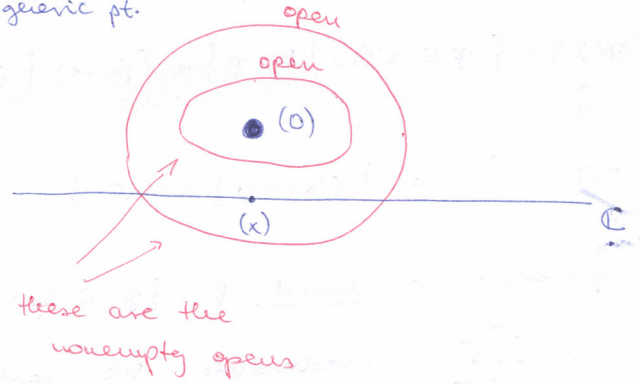 generic pt.
open
open
(0)
(x)
ℂ
these are the
nonempty opens